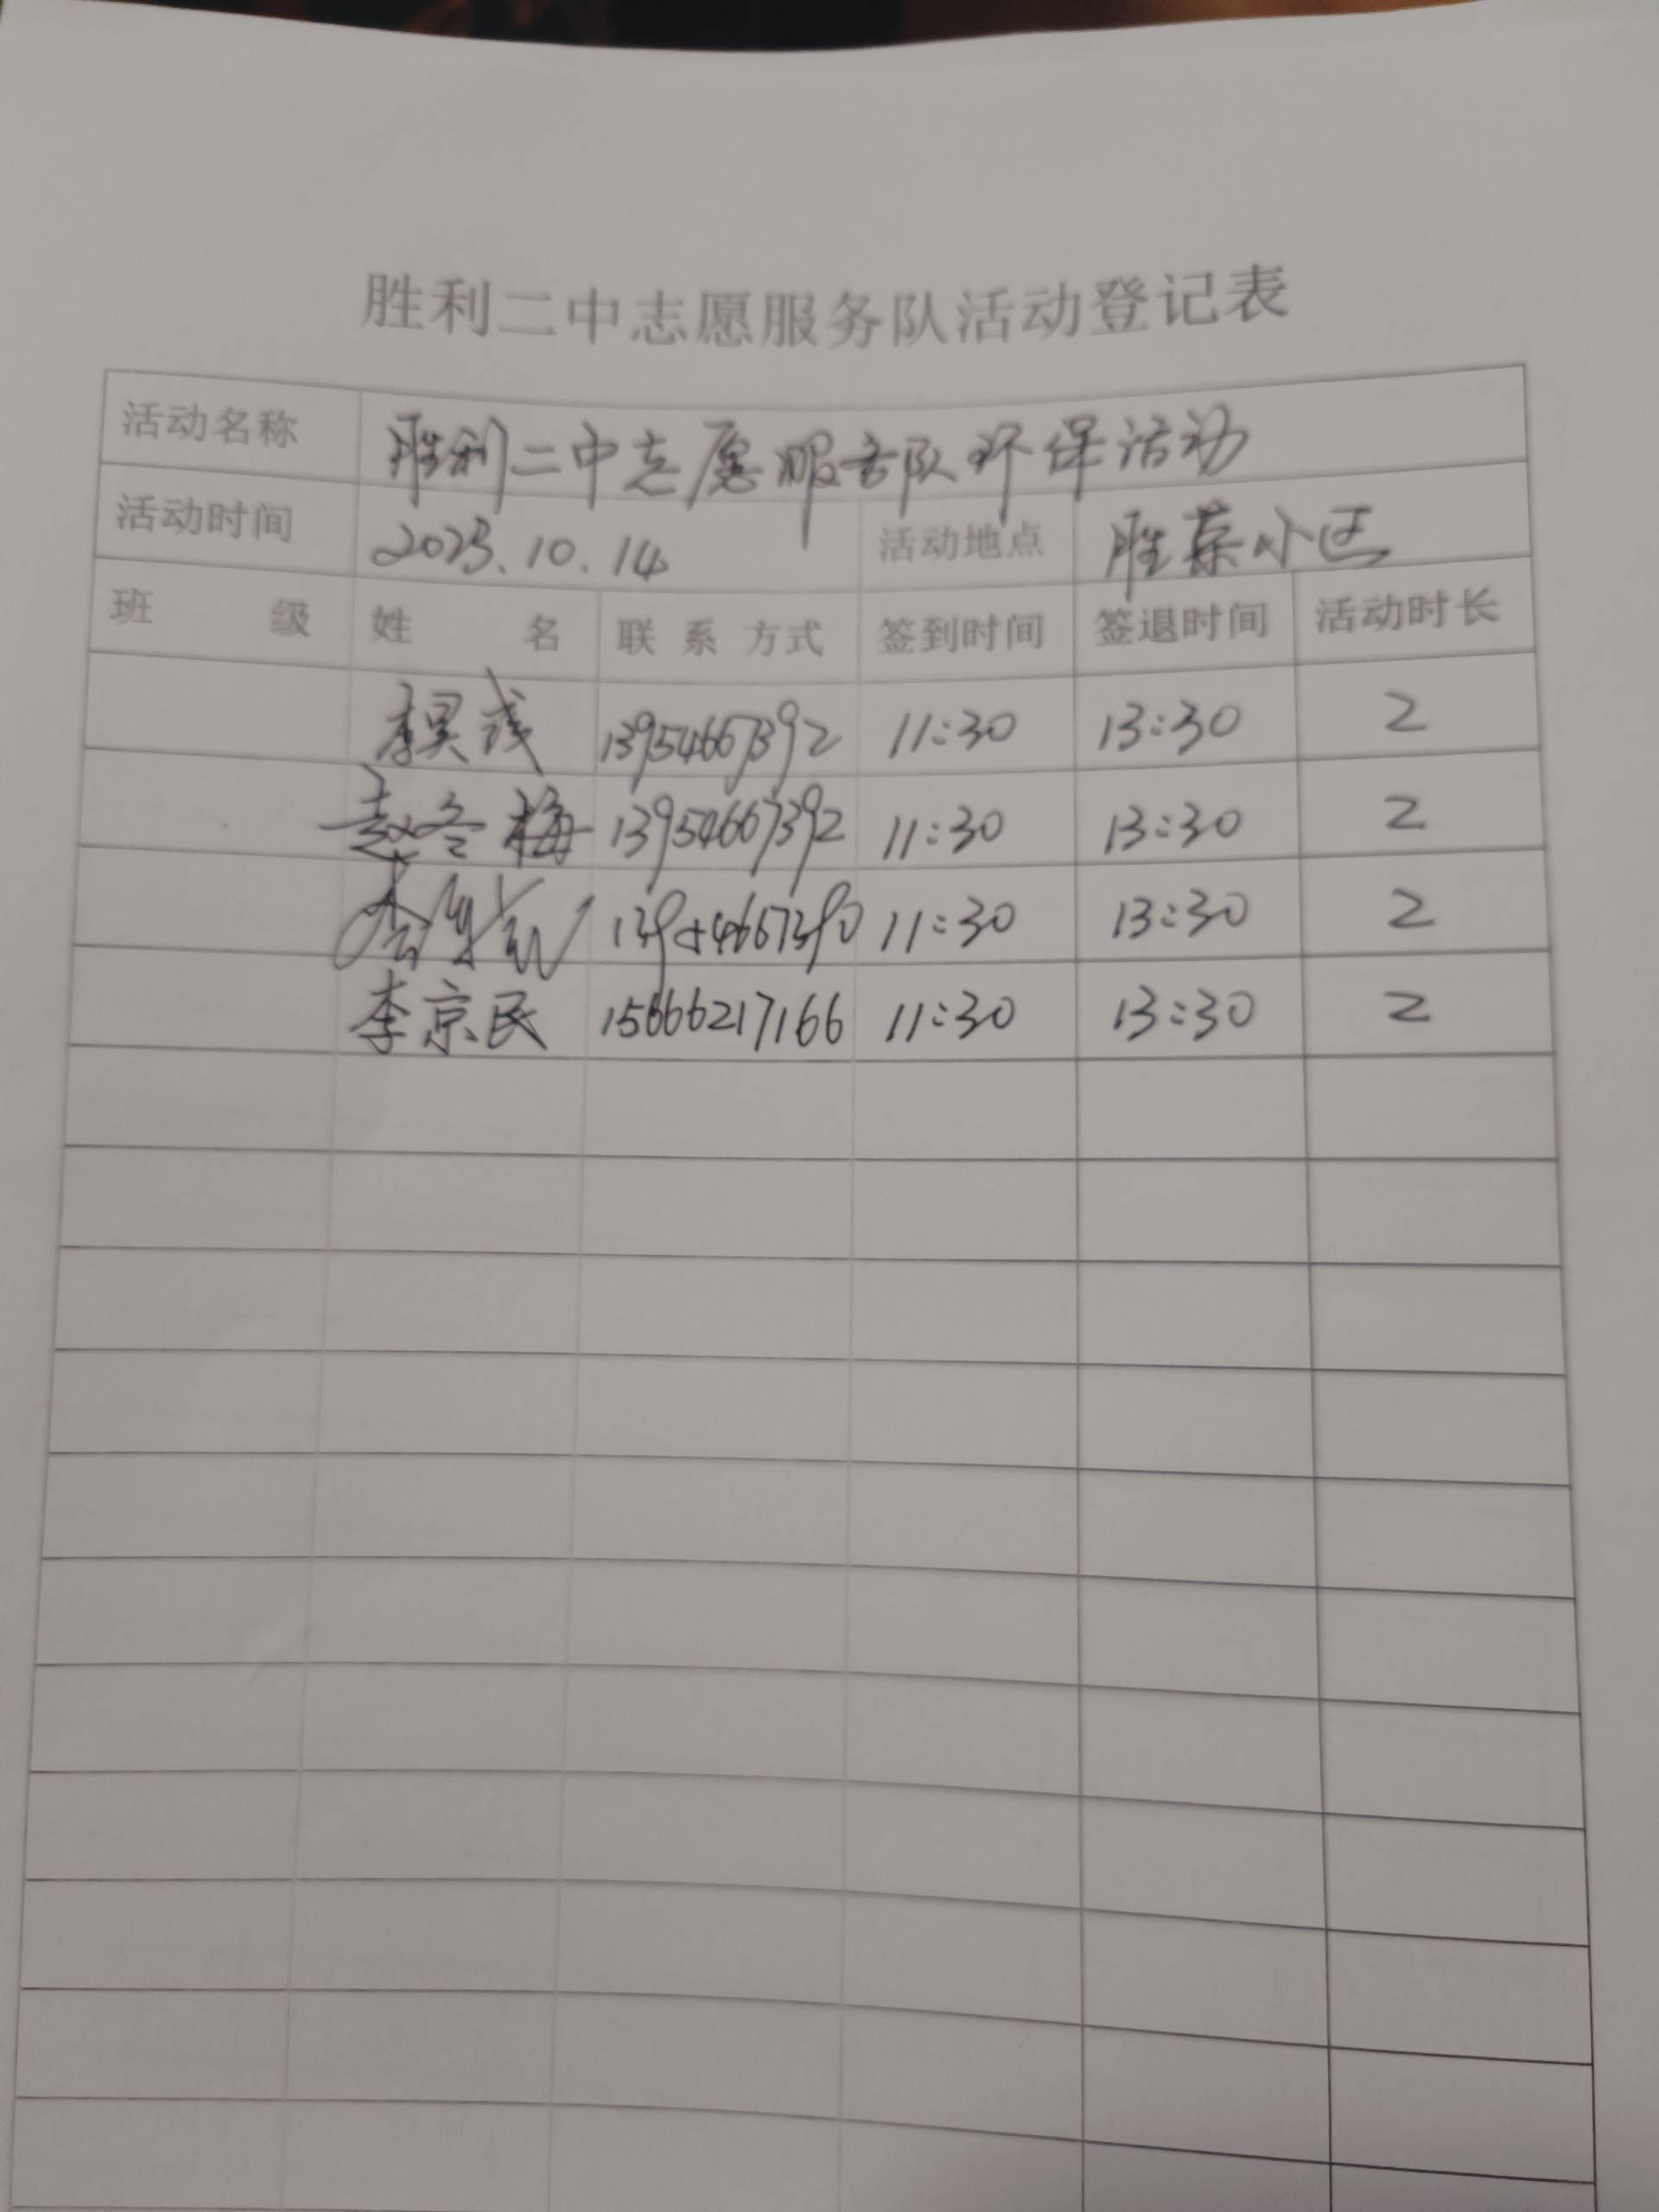 胜利二中志愿服务队活动登记表
活动名称 胜利二中志愿服务队环保活动
活动时间 2023.10.14 活动地点 胜采小区
班 级 姓 名 联 系 方式 签到时间 签退时间 活动时长
李昊 13954667392 11:30 13:30 2
赵冬梅 13954667392 11:30 13:30 2
李 13954667390 11:30 13:30 2
李京民 15666217166 11:30 13:30 2